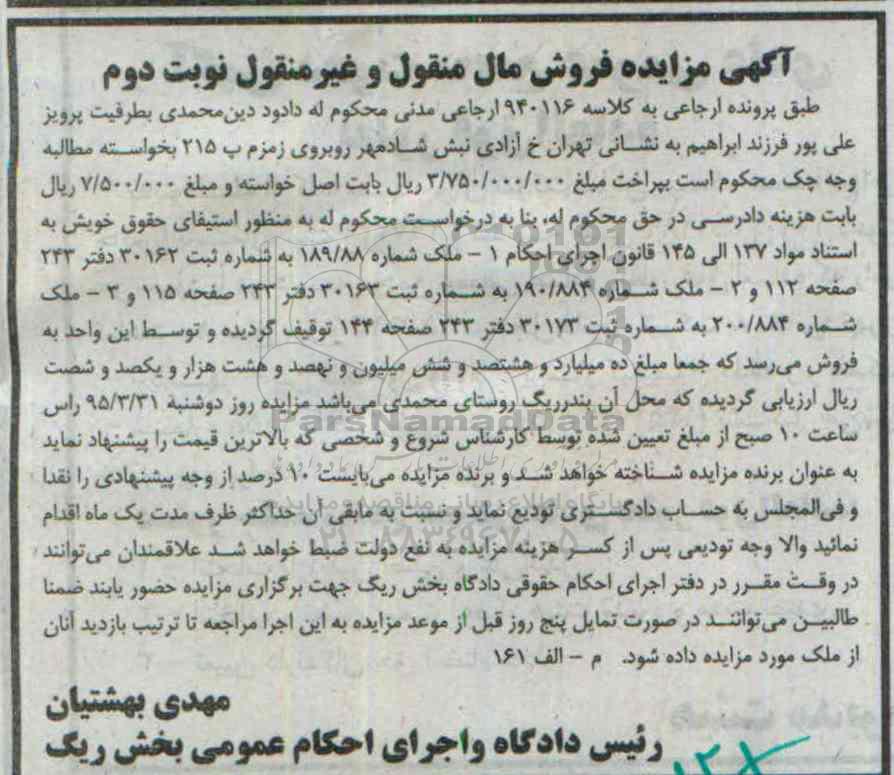 آگهی مزایده فروش مال منقول و غیرمنقول نوبت دوم
طبق پرونده ارجاعی به کلاسه ۹۴۰۱۱۶ ارجاعی مدنی محکوم له دادود دین‌محمدی بطرفیت پرویز
علی پور فرزند ابراهیم به نشانی تهران خ آزادی نبش شادمهر روبروی زمزم پ ۲۱۵ بخواسته مطالبه
وجه چک محکوم است بپراخت مبلغ ۳/۷۵۰/۰۰۰/۰۰۰ ریال بابت اصل خواسته و مبلغ ۷/۵۰۰/۰۰۰ ریال
بابت هزینه دادرسی در حق محکوم له، بنا به درخواست محکوم له به منظور استیفای حقوق خویش به
استناد مواد ۱۳۷ الی ۱۴۵ قانون اجرای احکام ۱ – ملک شماره ۱۸۹/۸۸ به شماره ثبت ۳۰۱۶۲ دفتر ۲۴۳
صفحه ۱۱۲ و ۲ – ملک شماره ۱۹۰/۸۸۴ به شماره ثبت ۳۰۱۶۳ دفتر ۲۴۳ صفحه ۱۱۵ و ۳ – ملک
شماره ۲۰۰/۸۸۴ به شماره ثبت ۳۰۱۷۳ دفتر ۲۴۳ صفحه ۱۴۴ توقیف گردیده و توسط این واحد به
فروش می‌رسد که جمعا مبلغ ده میلیارد و هشتصد و شش میلیون و نهصد و هشت هزار و یکصد و شصت
ریال ارزیابی گردیده که محل آن بندرریگ روستای محمدی می‌باشد مزایده روز دوشنبه ۹۵/۳/۳۱ راس
ساعت ۱۰ صبح از مبلغ تعیین شده توسط کارشناس شروع و شخصی که بالاترین قیمت را پیشنهاد نماید
به عنوان برنده مزایده شناخته خواهد شد و برنده مزایده می‌بایست ۱۰ درصد از وجه پیشنهادی را نقدا
و فی‌المجلس به حساب دادگستری تودیع نماید و نسبت به مابقی آن حداکثر ظرف مدت یک ماه اقدام
نمائید والا وجه تودیعی پس از کسر هزینه مزایده به نفع دولت ضبط خواهد شد علاقمندان می‌توانند
در وقت مقرر در دفتر اجرای احکام حقوقی دادگاه بخش ریگ جهت برگزاری مزایده حضور یابند ضمنا
طالبین می‌توانند در صورت تمایل پنج روز قبل از موعد مزایده به این اجرا مراجعه تا ترتیب بازدید آنان
از ملک مورد مزایده داده شود. م – الف ۱۶۱
مهدی بهشتیان
رئیس دادگاه واجرای احکام عمومی بخش ریگ
ParsNamadData